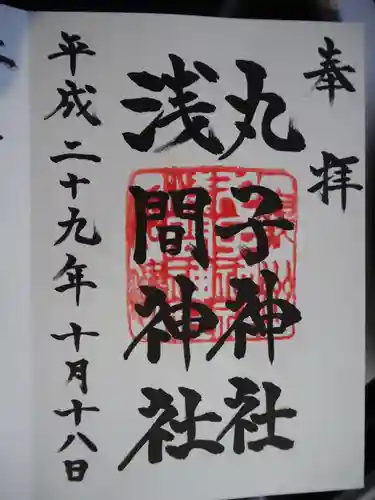 奉拝
丸子神社
浅間神社
平成二十九年十月十八日